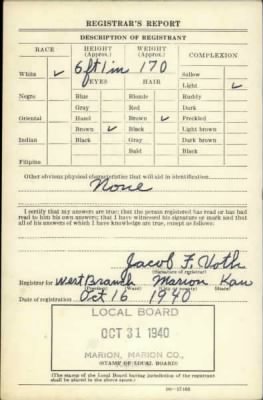 REGISTRAR'S REPORT
DESCRIPTION OF REGISTRANT
RACE HEIGHT (Approx.) WEIGHT (Approx.) COMPLEXION
White ✓ 6 ft 1 in 170 Sallow
EYES HAIR Light ✓
Negro Blue Blonde Ruddy
Gray Red Dark
Oriental Hazel Brown ✓ Freckled
Brown ✓ Black Light brown
Indian Black Gray Dark brown
Bald Black
Filipino
Other obvious physical characteristics that will aid in identification
None
I certify that my answers are true; that the person registered has read or has had
read to him his own answers; that I have witnessed his signature or mark and that
all of his answers of which I have knowledge are true, except as follows:
Jacob F. Voth
(Signature of registrar)
Registrar for West Branch Marion Kan
(Precinct) (Ward) (City or county) (State)
Date of registration Oct 16 1940
LOCAL BOARD
OCT 31 1940
MARION, MARION CO.,
(STAMP OF LOCAL BOARD)
(The stamp of the Local Board having jurisdiction of the registrant
shall be placed in the above space.)